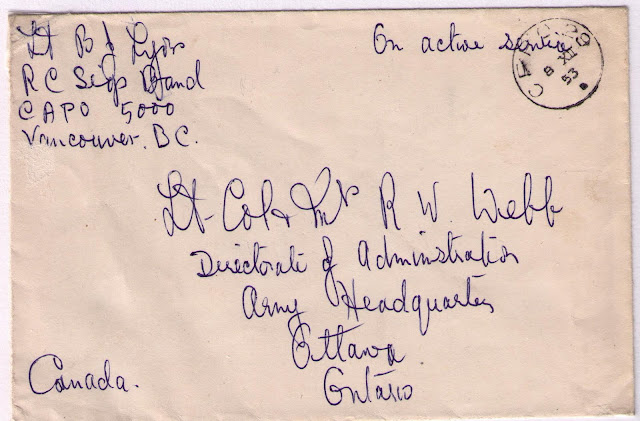 Lt B J Lyon
R C Sigs Band
CAPO 5000
Vancouver. B.C.
On active service
8 XII
53
Lt-Col & Mrs R W. Webb
Directorate of Administration
Army Headquarters
Ottawa
Ontario
Canada.